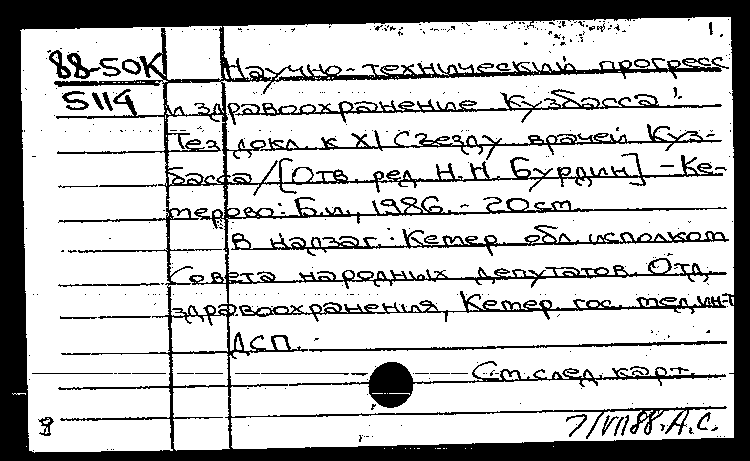 1.
88-50К Научно-технический прогресс
5114 и здравоохранение Кузбасса:
Тез. докл. к XI Съезду врачей Куз-
басса /[Отв. ред. Н.Н. Бурдин] - Ке-
мерово: Б.и., 1986. - 20 см
В надзаг.: Кемер. обл. исполком
Совета народных депутатов. Отд.
здравоохранения, Кемер. гос. мед. ин-т
ДСП.
См. след. карт.
7/VII 88. А.С.